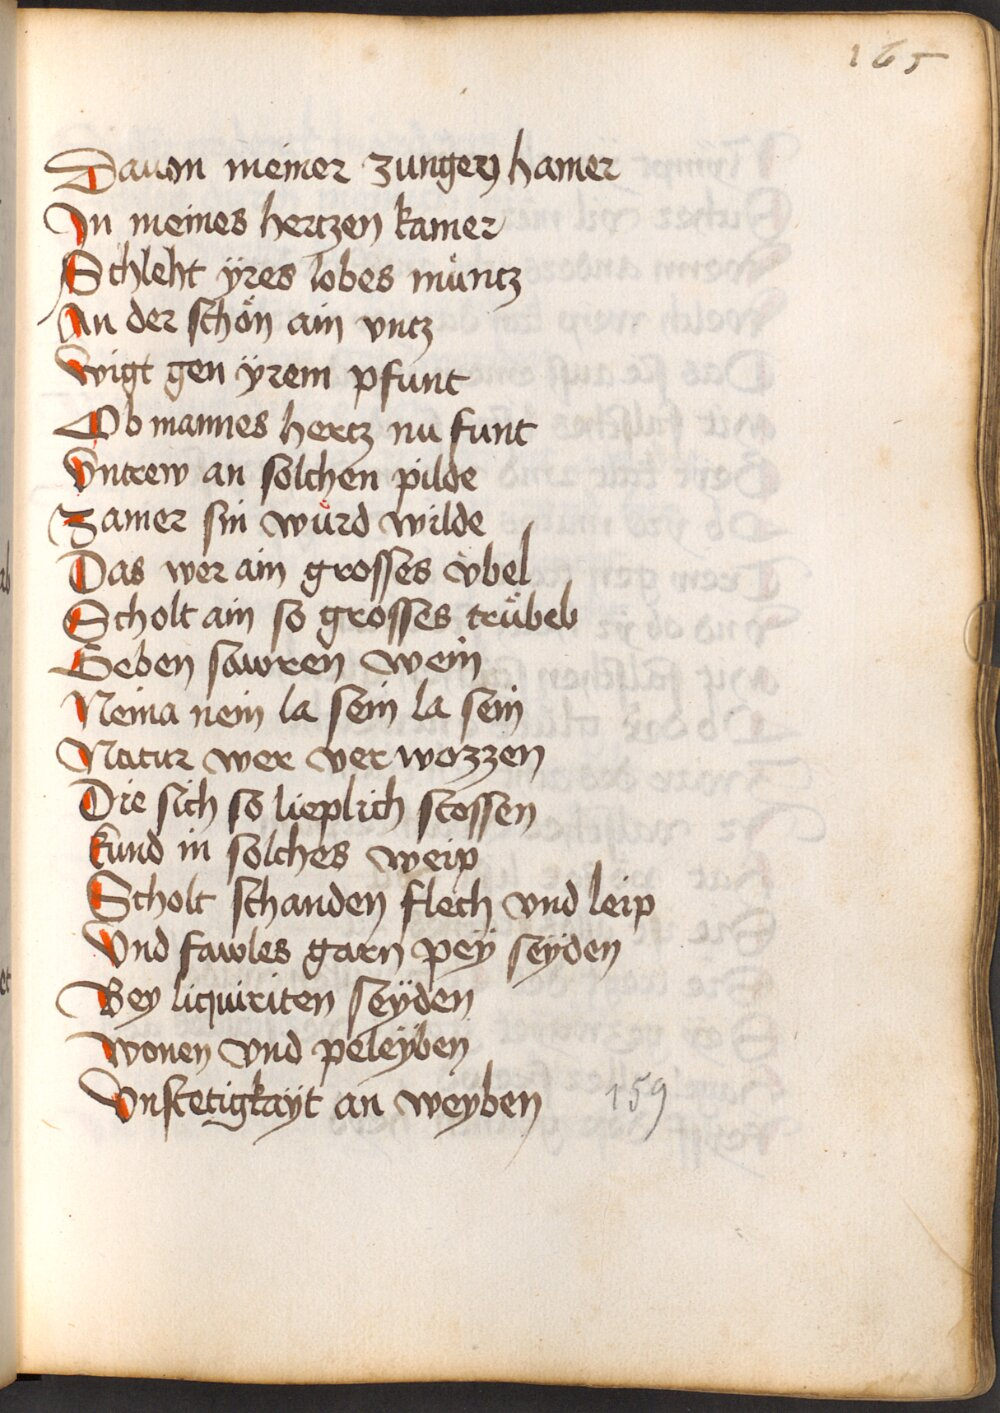 165
Dauon meiner zungen hamer
In meines hertzen kamer
Schleht ÿres lobes müntz
An der schön ain vntz
Wigt gen ÿrem pfunt
Ob mannes hertz nu funt
Vntrew an solchen pilde
Zamer sin würd wilde
Das wer ain grosses vbel
Scholt ain so grosses trübel
Geben sawren wein
Neina nein la sein la sein
Natur wer ver wozzen
Die sich so lieplich stossen
kund in solches weip
Scholt schanden flech vnd leip
Vnd fawles garn peÿ seÿden
Bey liquiriten seÿden
Wonen vnd peleÿben
Vnstetigkaÿt an weyben
159